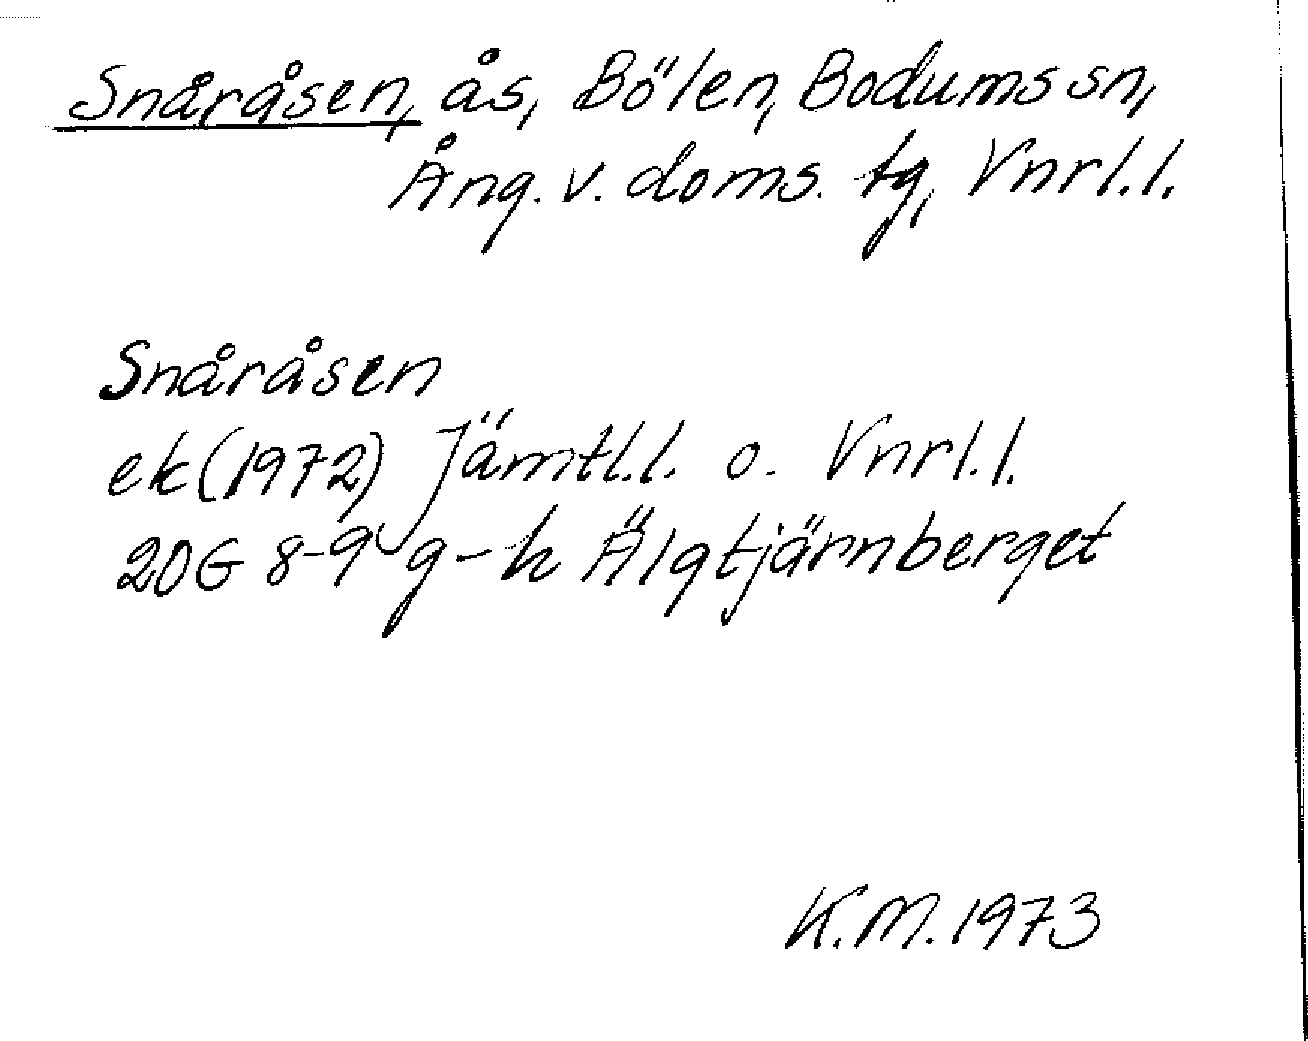 Snåråsen, ås, Bölen, Bodums sn,
Ång. v. doms. tg, Vnrl.l.
Snåråsen
ek (1972) Jämtl.l. o. Vnrl.l.
20G 8-9 g-h Älgtjärnberget
K.M. 1973